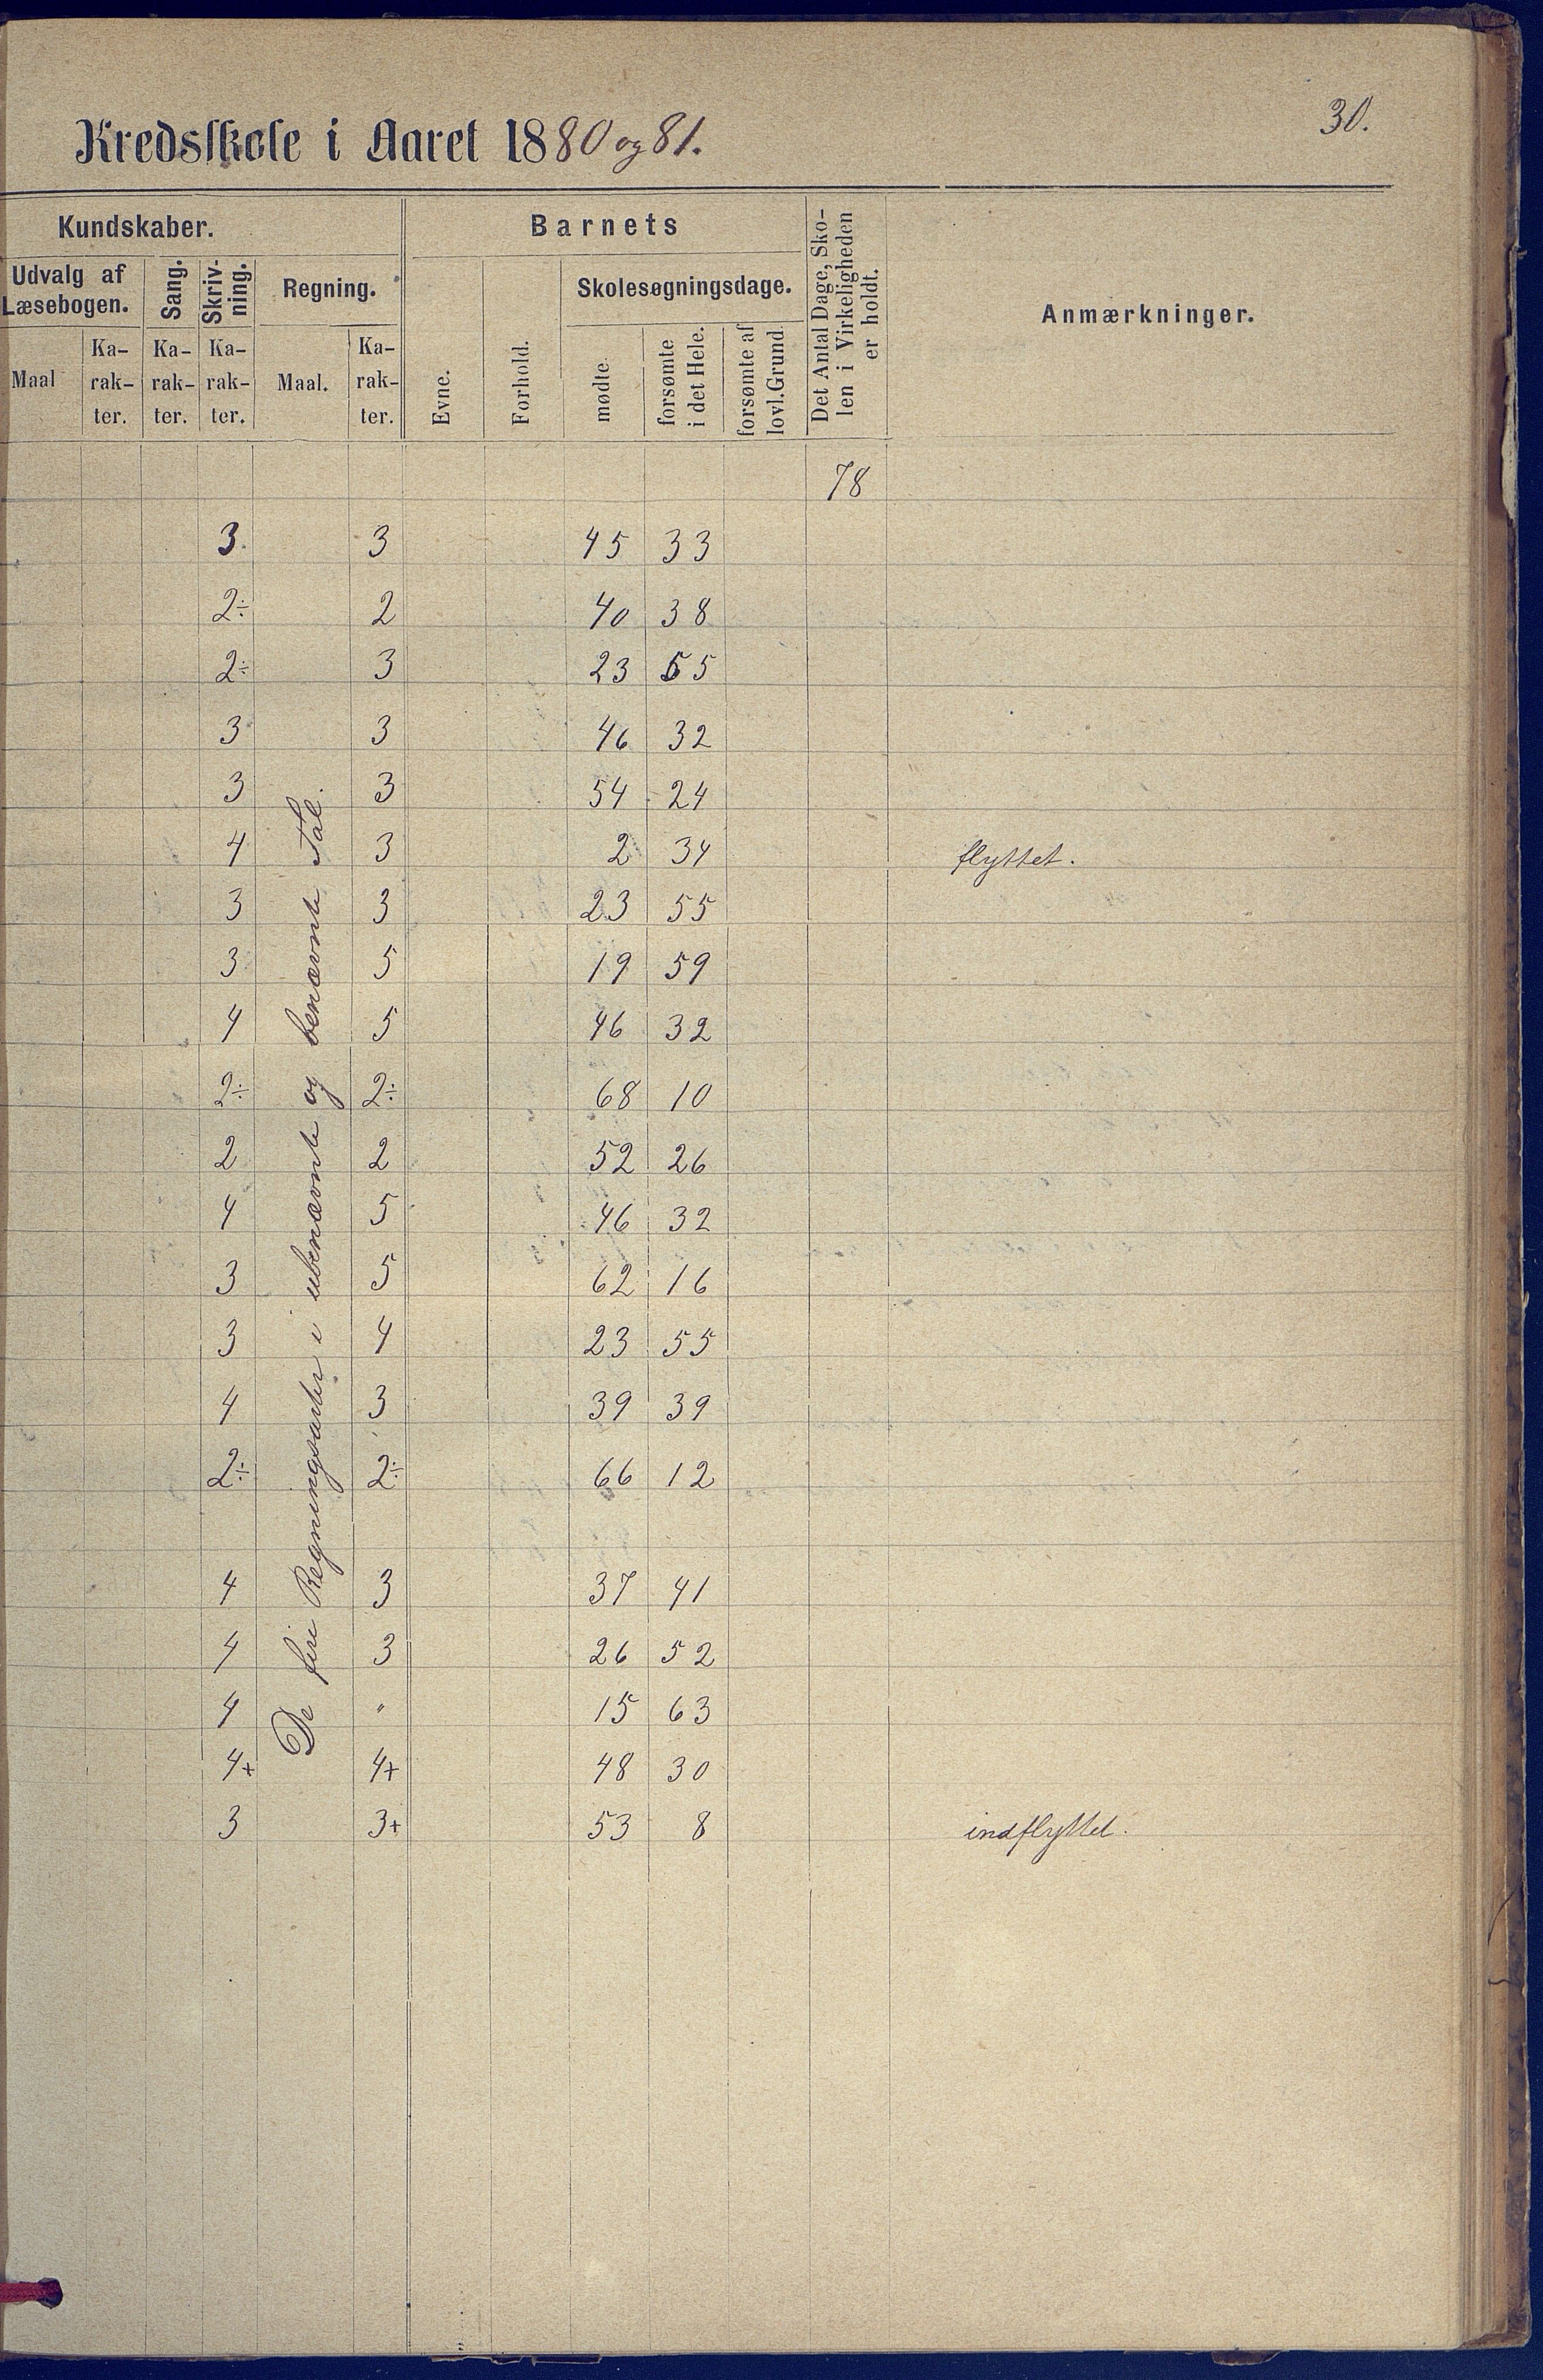 30.
Kredsskole i Aaret 1880 og 81.
Kundskaber.
Barnets
Det Antal Dage, Sko-
len i Virkeligheden
er holdt.
Anmærkninger.
Udvalg af
Læsebogen.
Sang.
Skriv-
ning.
Regning.
Skolesøgningsdage.
Maal
Ka-
rak-
ter.
Ka-
rak-
ter.
Ka-
rak-
ter.
Maal.
Ka-
rak-
ter.
Evne.
Forhold.
mødte.
forsømte
i det Hele.
forsømte af
lovl. Grund.
De fire Regningsarter i ubenævnte og benævnte Tal.
78
3. 3 45 33
2÷ 2 40 38
2÷ 3 23 55
3 3 46 32
3 3 54 24
4 3 2 34 flyttet.
3 3 23 55
3 5 19 59
4 5 46 32
2÷ 2÷ 68 10
2 2 52 26
4 5 46 32
3 5 62 16
3 4 23 55
4 3 39 39
2÷ 2÷ 66 12
4 3 37 41
4 3 26 52
4 " 15 63
4+ 4+ 48 30
3 3+ 53 8 indflyttet.